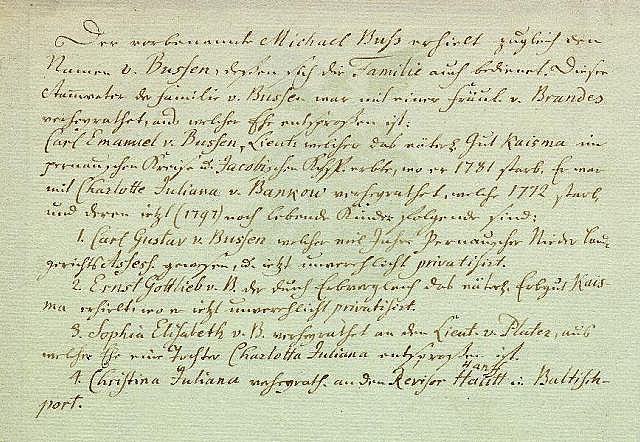 Der vorbenannte Michael Buſs erhielt zugleich den
Namen v. Bussen, deßen sich die Familie auch bedienet. Dieser
Stamvater der familie v. Bussen war mit einer Fräul. v. Brandes
verheyrathet, aus welcher Ehe entsproßen ist:
Carl Emanuel v. Bussen, Lieut: welcher das väterl. Gut Kaisma im
pernauschen Kreise u. Jacobischen Kchsp. erbte, wo er 1781 starb. Er war
mit Charlotte Juliana v. Bankow verheyrathet, welche 1772 starb,
und deren ietzt (1797) noch lebende Kinder folgende sind:
1. Carl Gustav v. Bussen welcher viel Jahre Pernauscher Nieder land-
gerichts Assess. gewesen, u. ietzt unverehlicht privatisirt.
2. Ernst Gottlieb v. B. der durch Erbvergleich das väterl. Erbgut Kais-
ma erhielt, wo er ietzt unverehlicht privatisirt.
3. Sophia Elisabeth v. B. verheyrathet an den Lieut. v. Plater, aus
welcher Ehe eine Tochter Charlotta Juliana entsproßen ist.
4. Christina Juliana verheyrath. an den Revisor Hautt in Baltisch-
port.